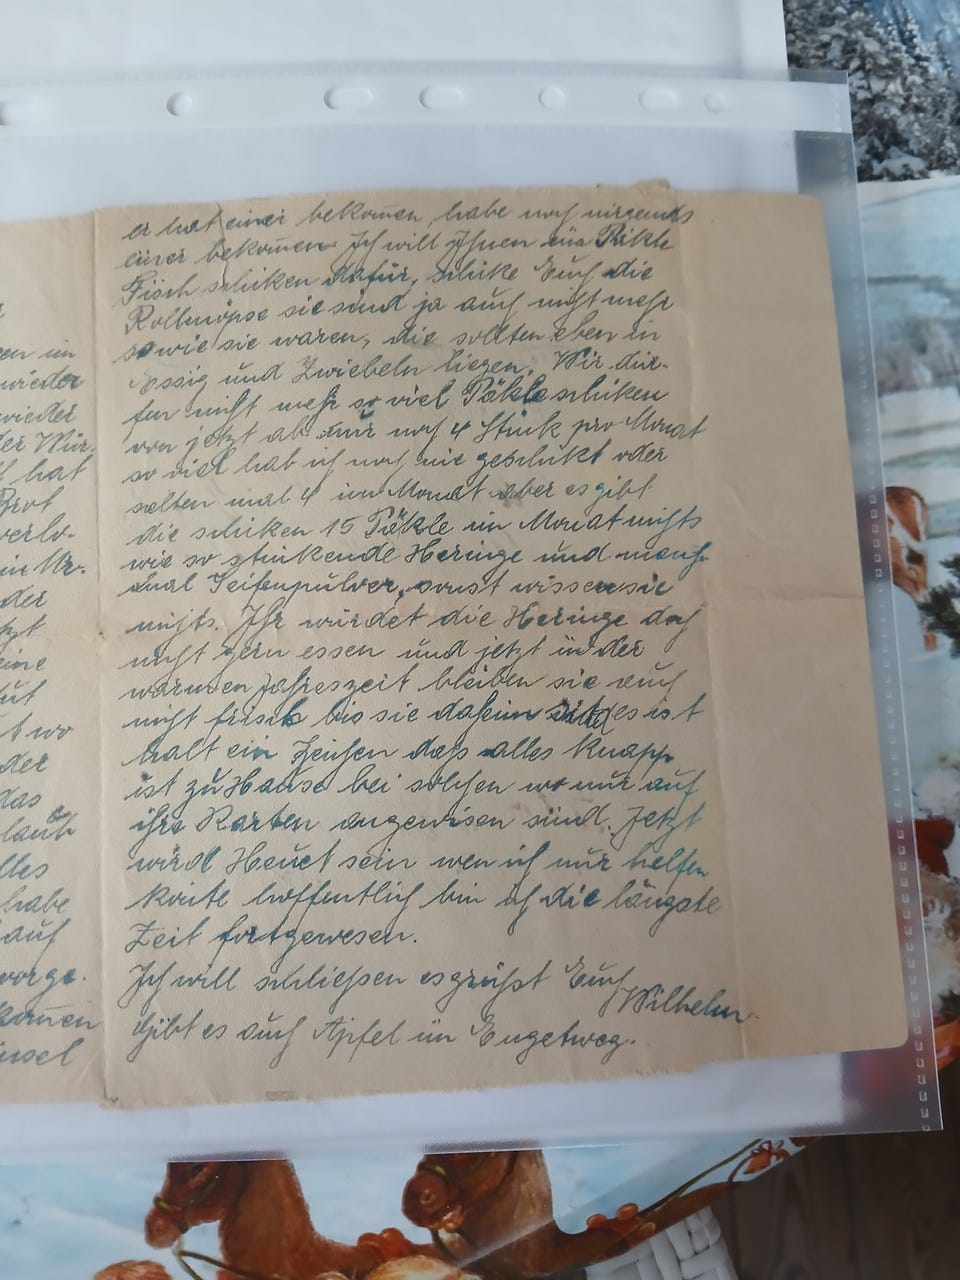 gen im
wieder
wieder
der Wür-
hat
Brot
verlo-
in Ur-
der
tzt
eine
wo
der
das
laub
lles
habe
auf
vorge.
komen
insel
er hat einei bekomen, habe noch nirgends
einer bekomen. Ich will Ihnen ein Päkle
Fisch schiken dafür, schike Euch die
Rollmöpse sie sind ja auch nicht mehr
so wie sie waren, die sollten eben in
Essig und Zwiebeln liegen. Wir dür-
fen nicht mehr so viel Päkle schiken
von jetzt ab nur noch 4 Stück pro Monat
so viel hab ich noch nie geschikt oder
selten mal 4 im Monat aber es gibt
die schiken 15 Päkle im Monat nichts
wie so stinkende Heringe und manch
mal Seifenpulver, sonst wissen sie
nichts. Ihr würdet die Heringe doch
nicht gern essen und jetzt in der
warmen Jahreszeit bleiben sie auch
nicht frisch bis sie daheim sind es ist
halt ein Zeichen daß alles knapp
ist zu Hause bei solchen wo nur auf
ihre Karten angewisen sind. Jetzt
wird Heuet sein wen ich nur helfen
könte hoffentlich bin ich die längste
Zeit fortgewesen.
Ich will schließen es grüßt Euch
Wilhelm.
Gibt es auch Äpfel im Engetweg.